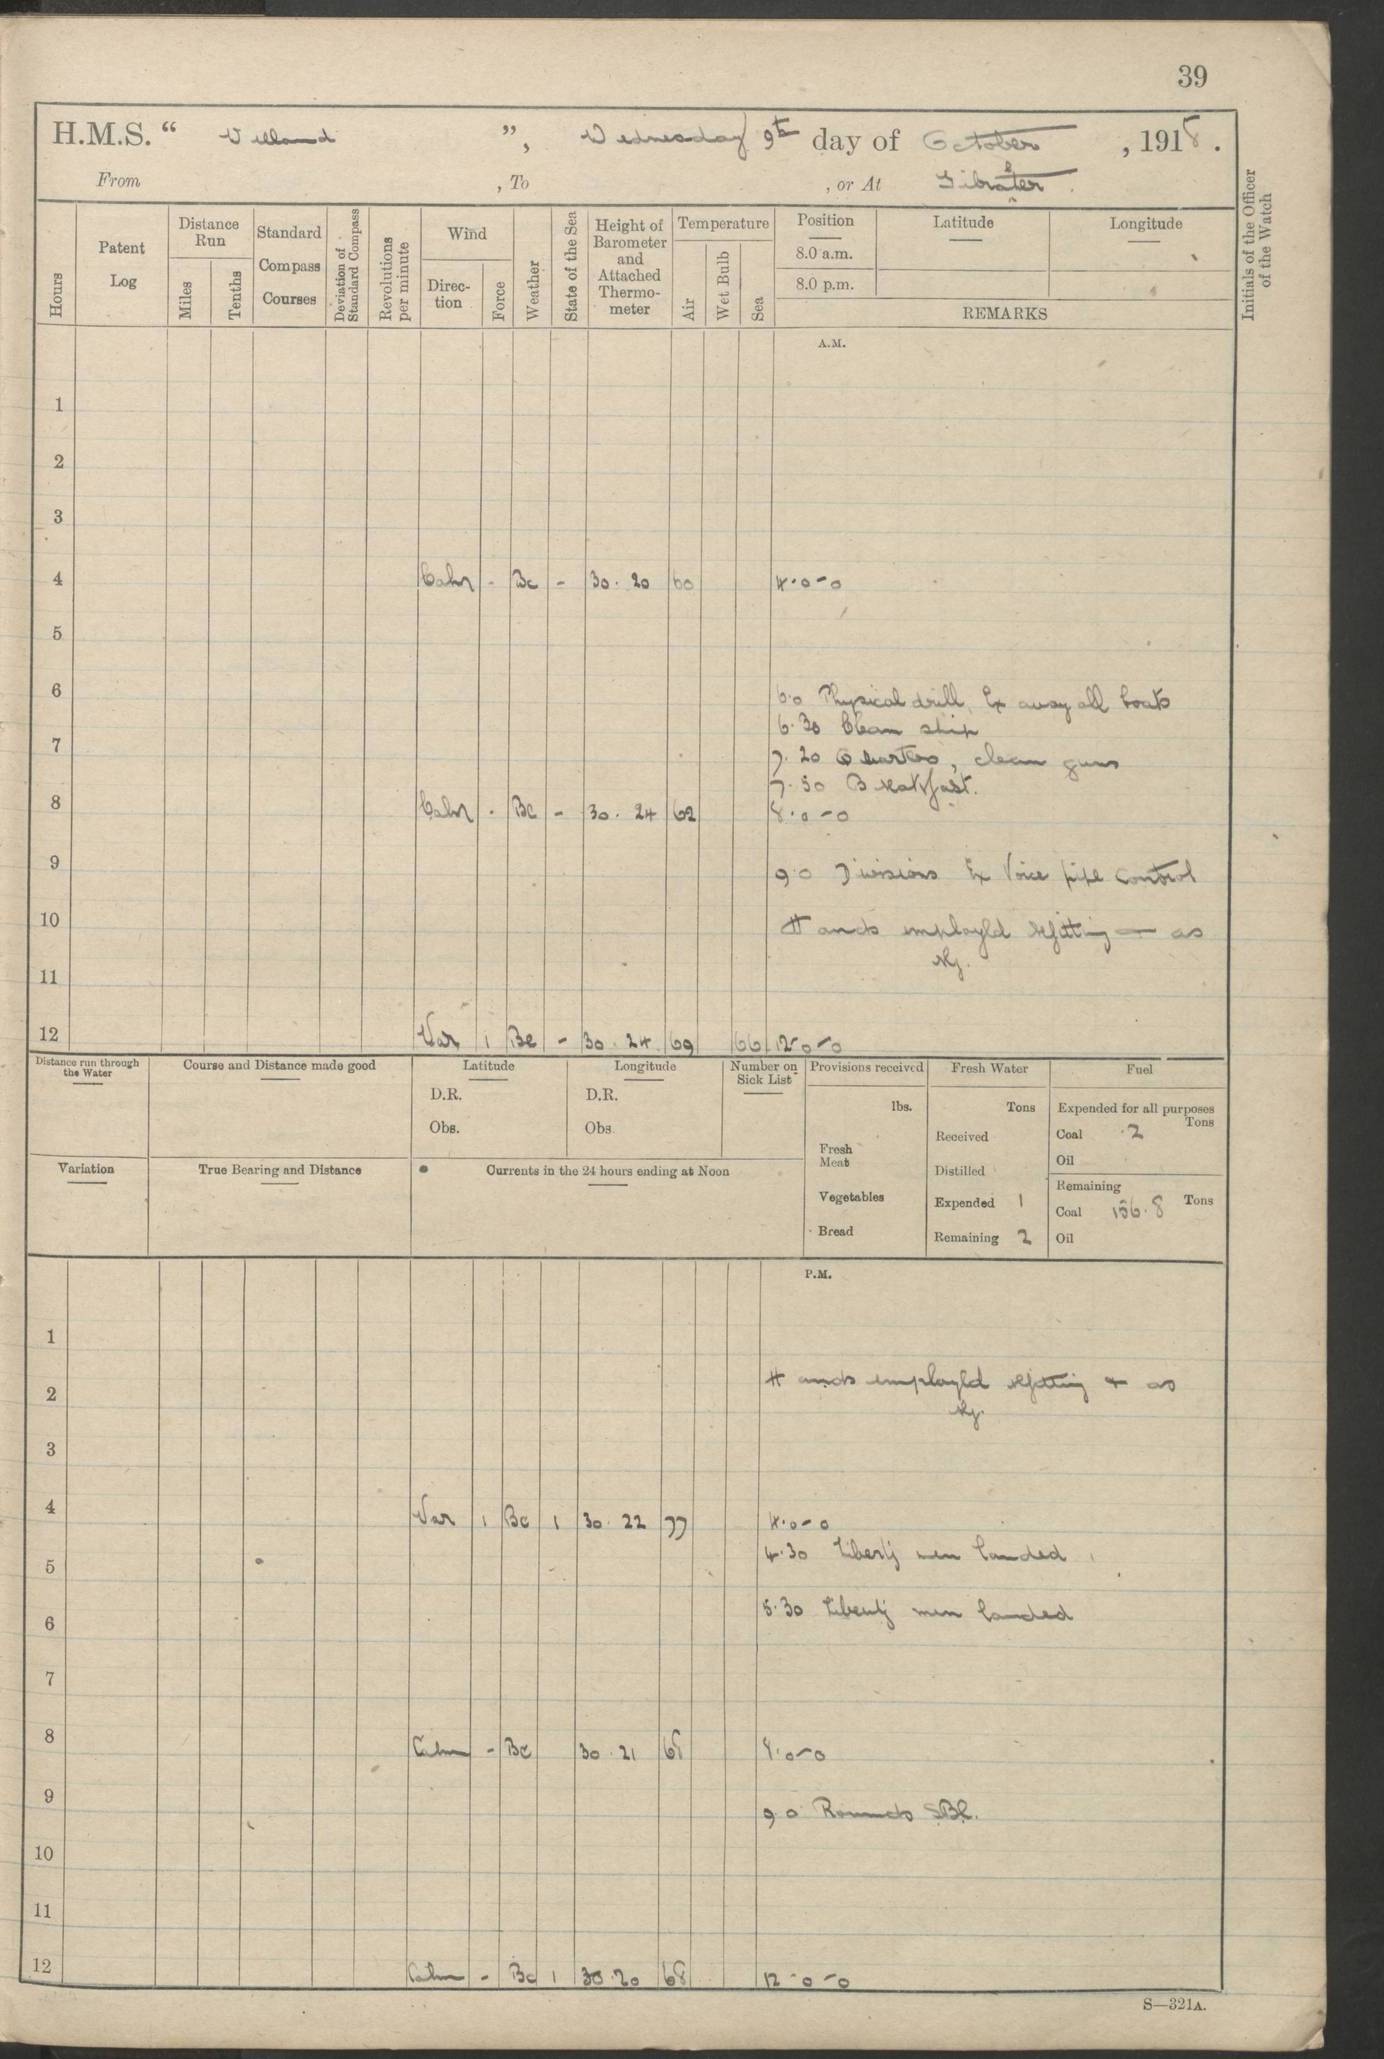 39
H.M.S. “ Welland ”, Wednesday 9th day of October , 1918 .
From , To , or At Gibralter .
Hours
Patent Log
Distance Run
Miles
Tenths
Standard Compass Courses
Deviation of Standard Compass
Revolutions per minute
Wind
Direction
Force
Weather
State of the Sea
Height of Barometer and Attached Thermometer
Temperature
Air
Wet Bulb
Sea
Position
8.0 a.m.
8.0 p.m.
Latitude
Longitude
REMARKS
Initials of the Officer of the Watch
A.M.
1
2
3
4 Calm - Bc - 30.20 60 4.0-0
5
6
6.0 Physical drill, Ex away all boats
6.30 Clean ship
7
7.20 Quarters, clean guns
7.50 Breakfast.
8 Calm . Bc - 30.24 62 8.0-0
9 9.0 Divisions Ex Voice pipe control
10 Hands employed refitting & as
req.
11
12 Var 1 Bc - 30.24 69 66 12-0-0
Distance run through the Water
Course and Distance made good
Latitude
D.R.
Obs.
Longitude
D.R.
Obs.
Number on Sick List
Provisions received
lbs.
Fresh Meat
Vegetables
Bread
Fresh Water
Tons
Received
Distilled
Expended 1
Remaining 2
Fuel
Expended for all purposes
Tons
Coal .2
Oil
Remaining
Tons
Coal 156.8
Oil
Variation
True Bearing and Distance
Currents in the 24 hours ending at Noon
P.M.
1
2 Hands employed refitting & as
req.
3
4 Var 1 Bc 1 30.22 77 4.0-0
4.30 Liberty men landed
5
5.30 Liberty men landed
6
7
8 Calm - Bc 30.21 68 8.0-0
9 9.0 Rounds
10
11
12 Calm - Bc 1 30.20 68 12-0-0
S—321A.